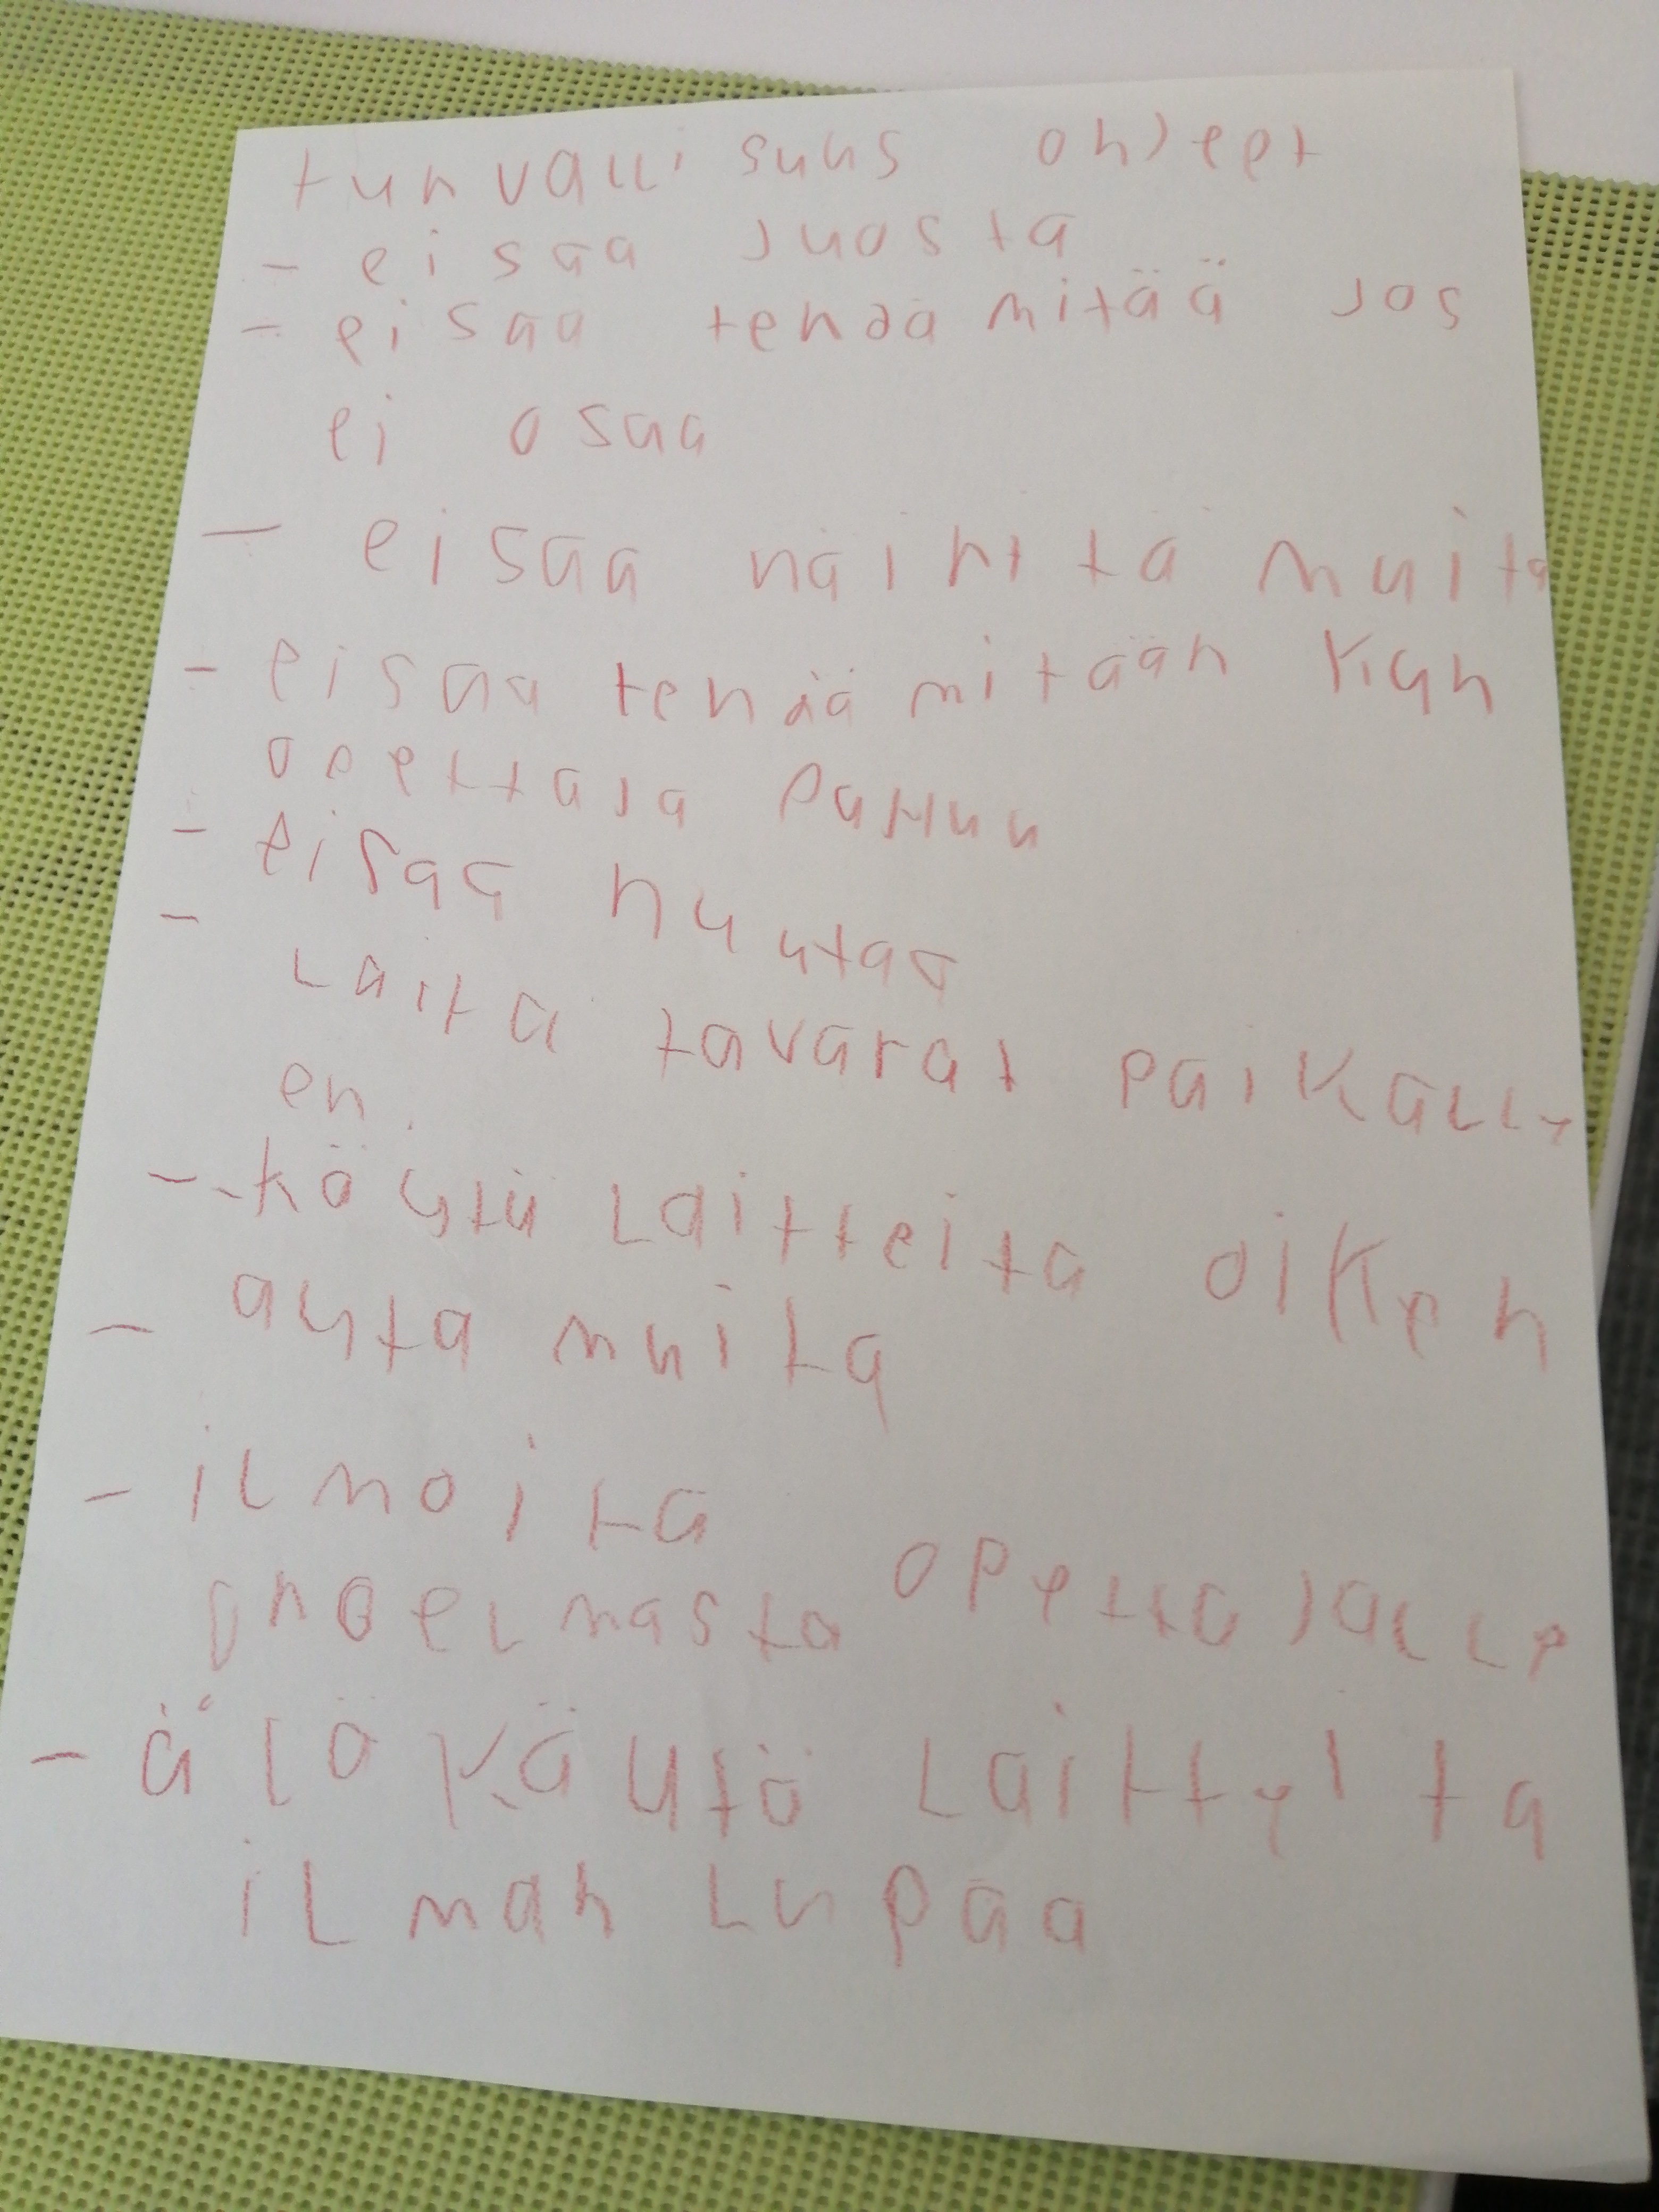 turvallisuus ohjeet
- ei saa juosta
- ei saa tehdä mitää jos
ei osaa
- ei saa näiritä muita
- ei saa tehdä mitään kun
opettaja puhuu
- ei saa huutaa
- laita tavarat paikall
en.
- käytä laitteita oiken
- auta muita
- ilmoita
ongelmasta opettajalle
- älä käytä laitteita
ilman lupaa